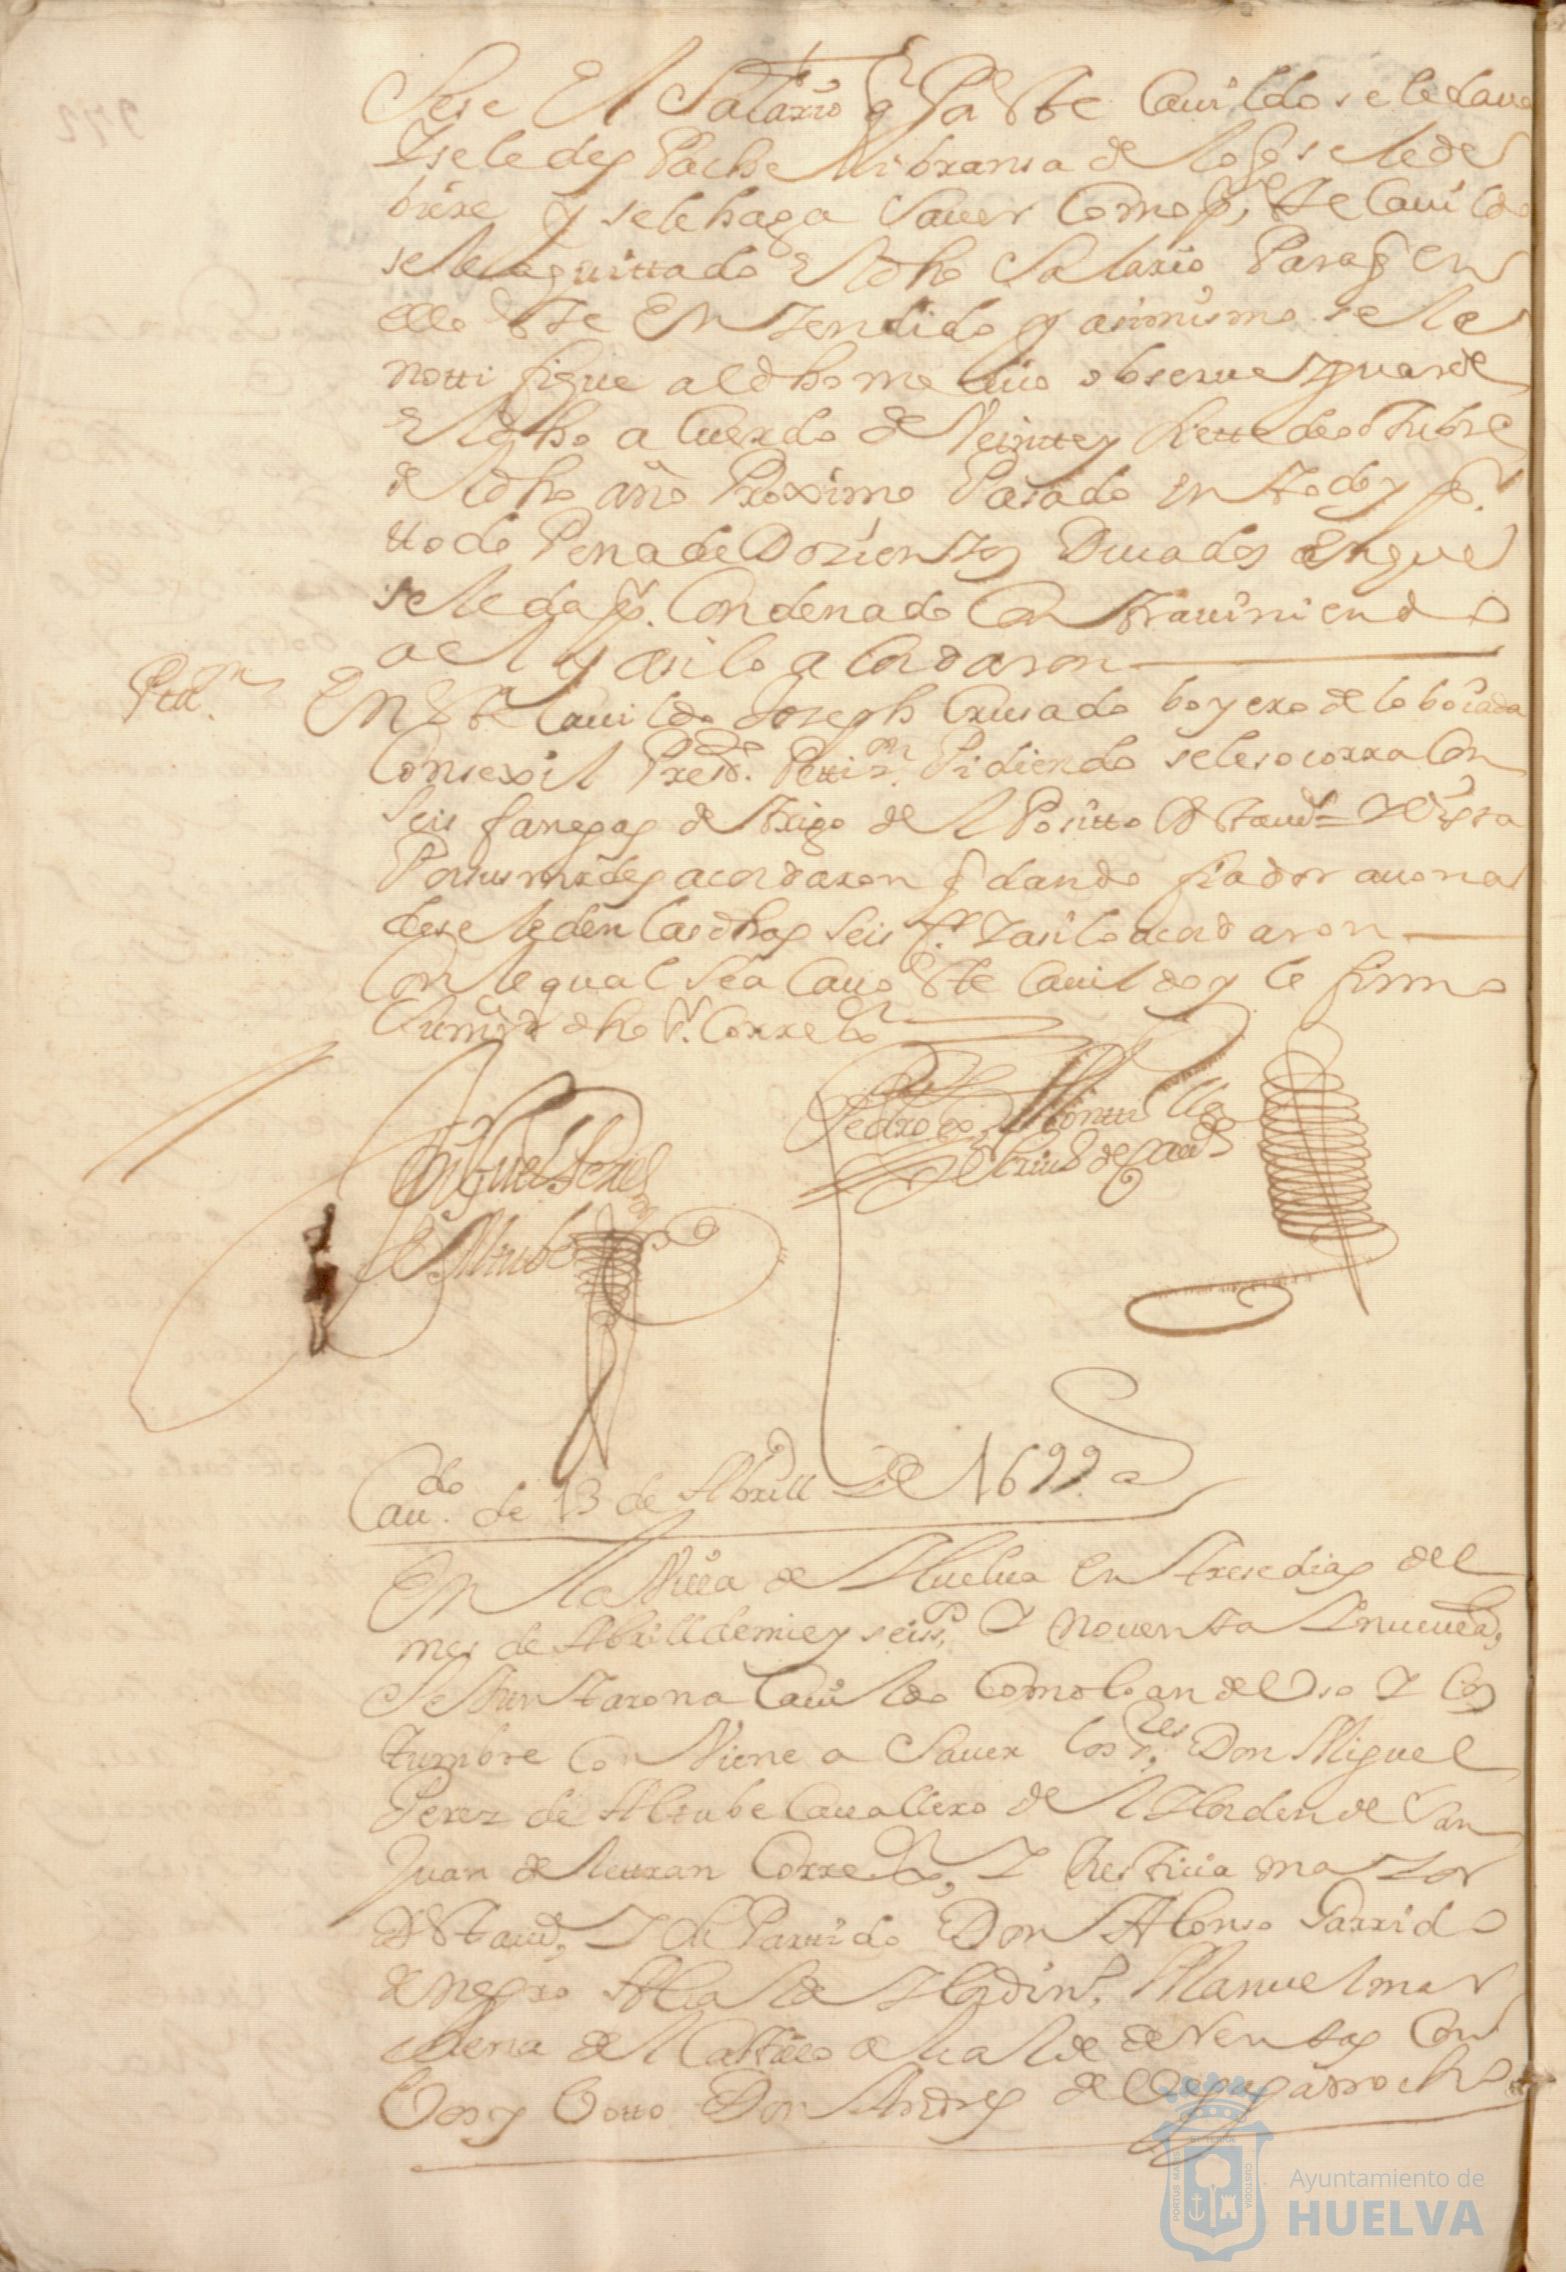 Sese El Salario q Pa este Cauildo se le daua
Y se le des Pache libransa de lo q se le de
biere y se le haga sauer Como pr este Cauildo
se le a quittado el dho Salario Para q en
ello este Entendido y asimismo se le
notti fique al dho me obserue y guarde
el dho a Cuerdo de Veintte y siette de octubre
del dho año Proximo Pasado en todo y pr
ttodo Pena de Dozientos Ducados en que
se le da pr Condenado Contrauiniendo
a el y asi lo a Cordaron
Pttn En este Cauildo Joseph Crusado boyero de la boiada
Consexil Presdo Pettizn Pidiendo se le socorra Con
seis fanegas de trigo del Positto desta ud = Y Vista
Por sus mrdes acordaron q dando fiador auona
do se le den las dhas seis fs Y asi lo acordaron
Con lo qual se a Cauo este Cauildo y lo firmo
su md dho sr Corregor
Miguel Perez
de Alzube
Pedro de Monttilla
escriuo de Cauo
Caudo de 13 de Abrill de 1699 a
En la Villa de Huelua en trese dias del
mes de Abrill de mil y seiss Y nouenta Y nueue a,
Se Juntaron a Cauildo Como lo an de Uso Y Cos
tumbre Conviene a Sauer los sres Don Miguel
Perez de Alzube Cauallero del Horden de San
Juan de Lettran Corregor, Y Justicia maior
desta ud, Y su Partido Don Alonso Garrido
de negro Alcalde Hordino, Manuel mar
chena del Castillo alcalde de Ventas Con
Vos y Votto Don Andres de Vega garrocho
Ayuntamiento de
HUELVA